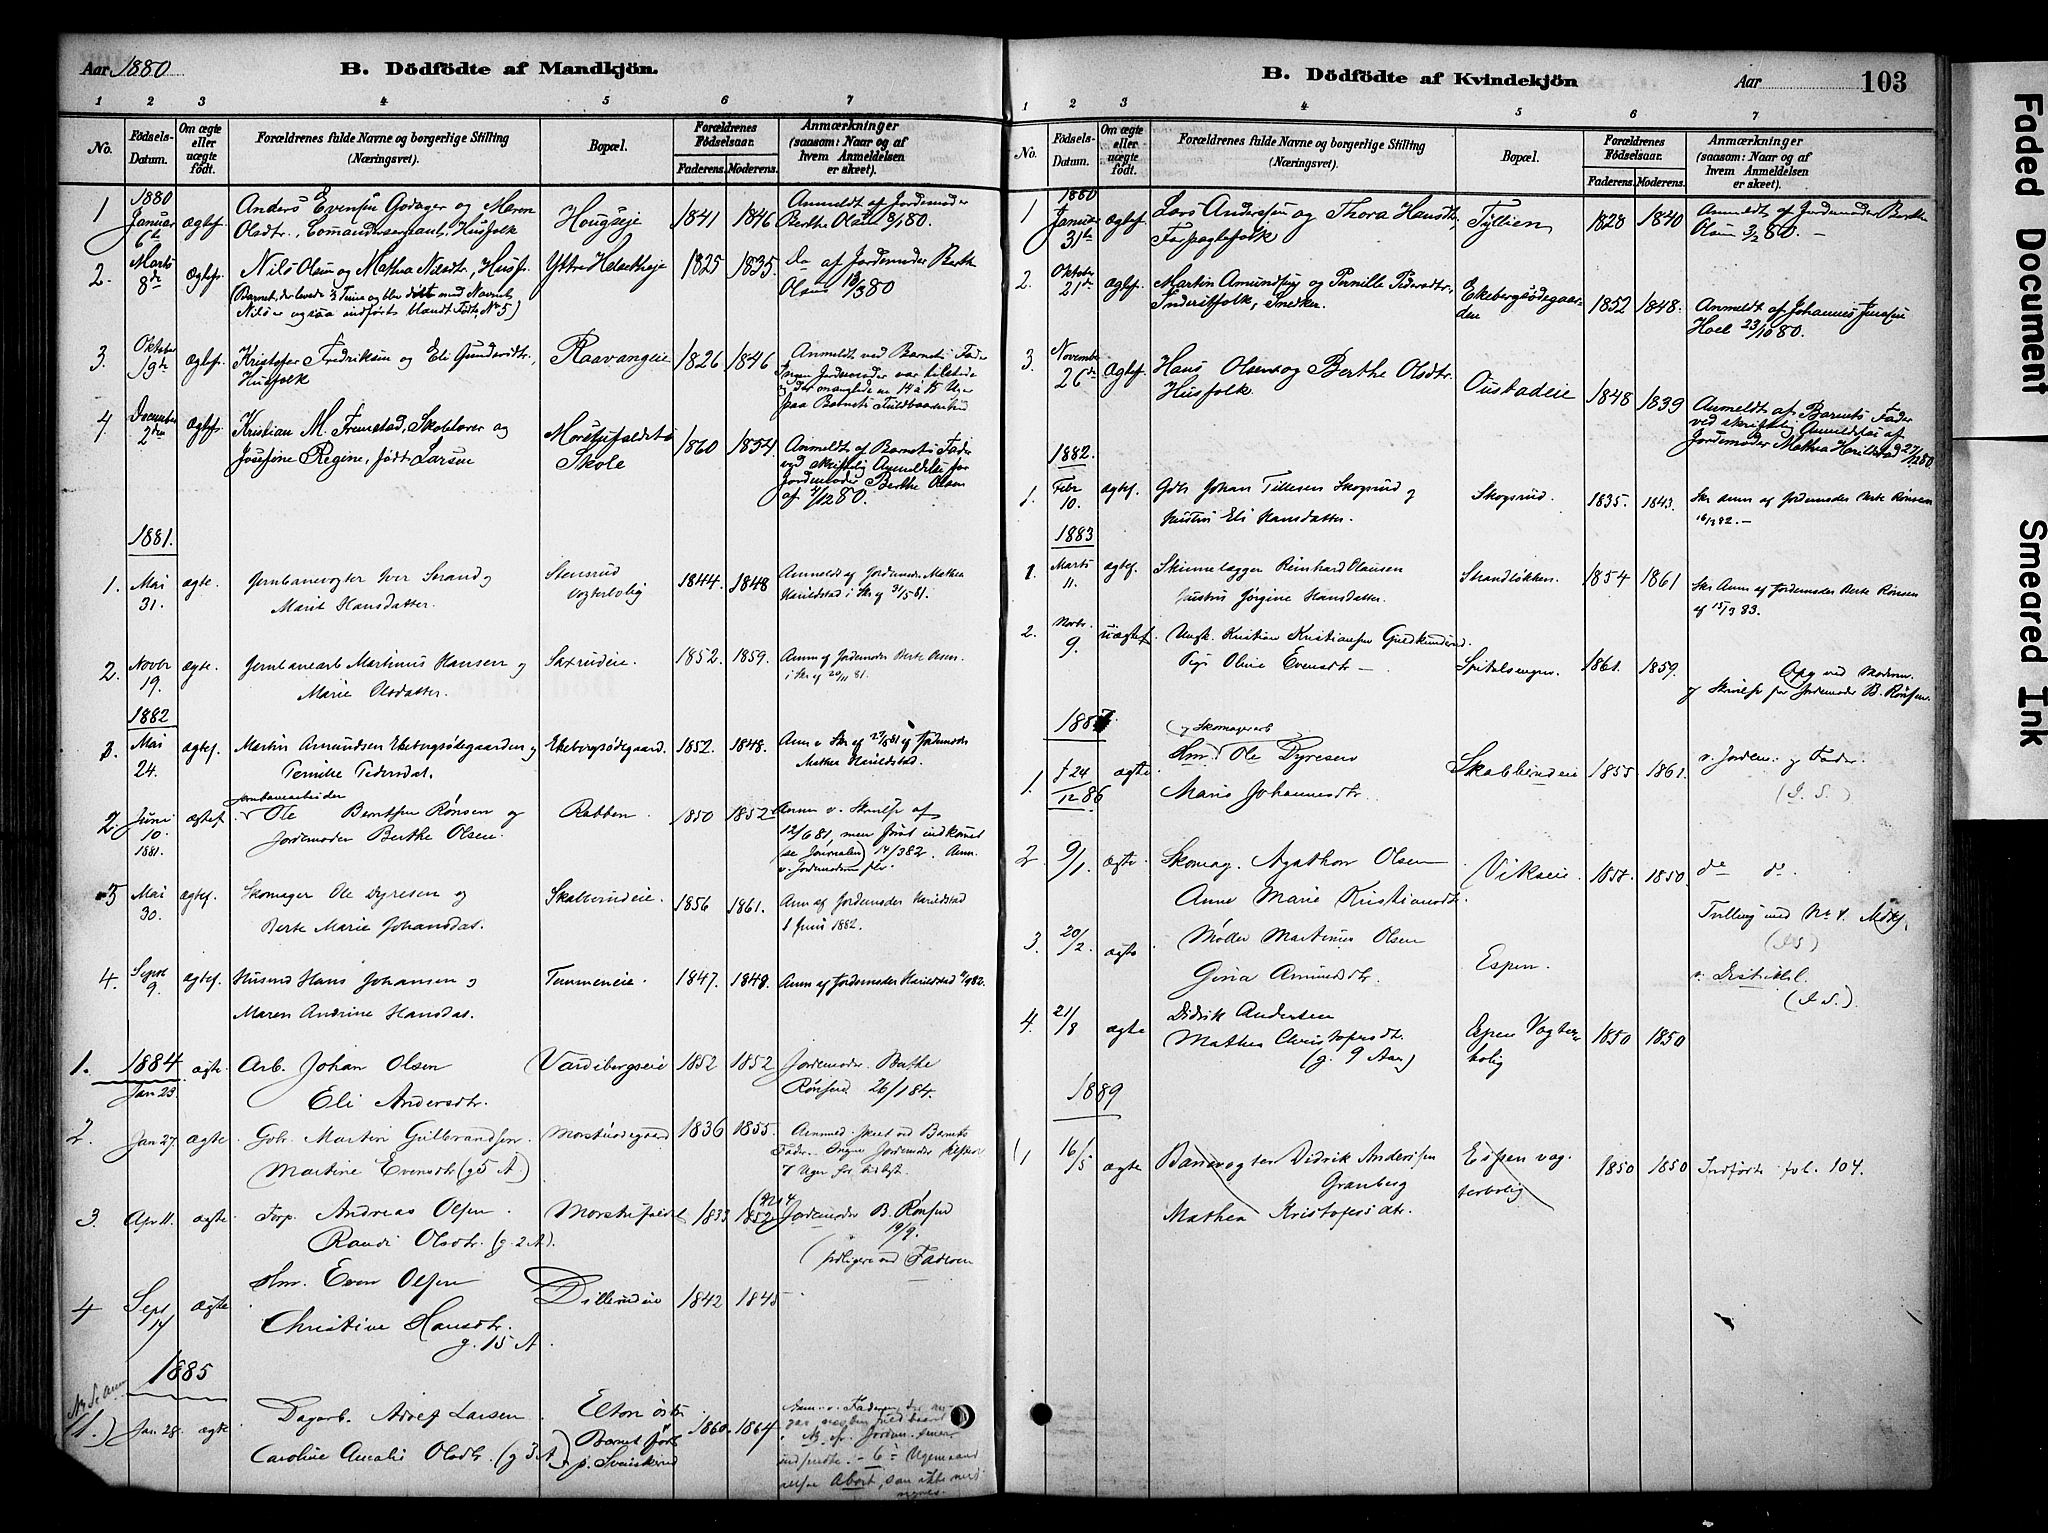 Aar 1880
B. Dödfödte af Mandkjön.
1 2 3 4 5 6 7
No.
Födsels-Datum.
Om ægte eller uægte födt.
Forældrenes fulde Navne og borgerlige Stilling (Næringsvei).
Bopæl.
Forældrenes Födselsaar.
Faderens. Moderens.
Anmærkninger (saasom: Naar og af hvem Anmeldelsen er skeet).
1 1880 Januar 6te ægtef. Anders Evensen Godager og Maren Olsdtr., Comandersergeant, Husfolk Hougseje 1841 1846 Anmeldt af Jordemoder Berthe Olsen 8/1 80.
2. Marts 8de Ægtef. Nils Olsen og Mathea Nilsdtr., Husf. Yttre Helsetheje 1825 1835. do af Jordemoder Berthe Olsen 13/3 80
(Barnet, der levede 2 Time og blev døbt med Navnet Nils er ogsaa indført blandt Fødte, No 5)
3. Oktober 19de ægtef. Kristofer Fredriksen og Eli Gundersdtr., Husfolk Raavangeie 1826 1846 Anmeldt ved Barnets Fader Ingen Jordemoder var tilstede og der manglede 14 à 15 Uger paa Barnets Fuldbaarenhed
4. December 2den Ægtef. Kristian M. Fremstad, Skolelærer og Josefine Regine, født Larsen Morstufaldets Skole 1860 1854. Anmeldt af Barnets Fader ved skriftlig Anmeldelse fra Jordemoder Berthe Olsen af 4/12 80.
1881.
1. Mai 31. ægte Jernbanevogter Iver Strand og Marit Hansdatter. Stensrud Vogterbolig 1844. 1848 Anmeldt af Jordemoder Mathea Harildstad i Skr af 31/5 81.
2. Novbr 19. ægte. Jernbanearb Martinus Hansen og Marie Olsdatter. Saxrudeie. 1852. 1859. Anm af Jordemoder Berte Olsen i Skr af 20/11 81.
1882
1. Mai 24. ægtef. Martin Amundsen Ekebergsødegaarden og Pernilke Pedersdat. Ekebergsødegaard. 1852. 1848. Anm v Skr af 29/5 81 af Jordemoder Mathea Harildstad.
2 Juni 10. 1881. ægtef. Jernbanearbeider Ole Berntsen Rønsen og Jordemoder Berthe Olsen. Rabben. 1850 1852 Anm v. Skrivelse af 12/6 81, men først indkomet (se Journalen) 14/3 82. Anm. v. Jordemoderen selv.
3 Mai 30. ægtef. Skomager Ole Dyresen og Berte Marie Johansdat. Skabberudeie. 1856 1861. Anm af Jordemoder Harildstad 1 Juni 1882.
4. Septbr 9. ægtef. Husmd Hans Johansen og Maren Andrine Hansdat. Tømmeneie. 1847. 1848. Anm af Jordemoder Harildstad 11/9 82.
1. 1884 Jan 23. ægte. Arb. Johan Olsen Eli Andersdtr. Vardebergseie 1852 1852 Jordemoder Berthe Rønsen 26/1 84.
2. Jan 27. ægte Gbr. Martin Gulbrandsen Martine Evensdtr (g 5 A). Morstuødegaard 1836 1855. Anmeld. skeet ved Barnets Fader. Ingen Jordemoder
3. Apr 11. ægte Torp. Andreas Olsen. Randi Olsdtr. (g 2 A). Morstufaldet 1833 1852 Jordemoder B. Rønsen 19/9. tidligere ved Faderen
4 Sept 14 ægte Hm. Even Olsen Christine Hansdtr. g. 15 A. Dillerudeie 1842 1845
1885
1. Jan 28. ægte Dagarb. Adolf Larsen Caroline Amalie Olsdtr. (g 3 A). Elton østre Barnet født p. Svenskerud 1860. 1864 Anm. v. Faderen, Abort, som ikke
103
B. Dödfödte af Kvindekjön
Aar
1 2 3 4 5 6 7
No.
Födsels-Datum.
Om ægte eller uægte födt.
Forældrenes fulde Navne og borgerlige Stilling (Næringsvei).
Bopæl.
Forældrenes Födselsaar.
Faderens. Moderens.
Anmærkninger (saasom: Naar og af hvem Anmeldelsen er skeet).
1 1880 Januar 31te ægtef. Lars Andersen og Thora Hansdtr. Torpægtefolk Tyllien 1828 1840 Anmeldt af Jordemoder Berthe Olsen 3/2 80. –
2. Oktober 21de ægtef. Martin Amundsen og Pernille Pedersdtr., Inderstfolk, Snedker. Ekebergsødegaarden 1852 1848. Anmeldt af Johannes Jensen Hoel 23/10 80.
3. November 26de Ægtef. Hans Olsen og Berthe Olsdtr. Husfolk. Oustadeie 1848 1839 Anmeldt af Barnets Fader ved skriftlig Anmeldelse af Jordemoder Mathea Harildstad 27/12 80.
1882.
1. Febr 10. ægtef. Gdr Johan Tillesen Skogsrud og Hustru Eli Hansdatter. Skogsrud. 1835. 1843. Skr anm af Jordemoder Berte Rønsen 16/3 82. –
1883
1. Marts 11. ægtef. Skinnelægger Reinhard Olausen Hustru Jørgine Hansdatter. Strandløkken. 1854 1861 Skr Anm af Jordemoder Berte Rønsen af 15/3 83.
2. Novbr. 9. uægtef. Ungk. Kristian Kristiansen Gudkundrud. Pige Oline Evensdtr – Spitalsengen. 1861. 1859. Opg ved Moderen og Skrivelse fra Jordemoder B. Rønsen.
1887
1. f 24/12 86 ægte og Skomagerarb Hm. Ole Dyresen Marie Johannesdtr. Skabberudeie 1855 1861. v. Jordem: og Fader. (I. S.)
2 9/1 ægte Skomag. Agathon Olsen Anne Marie Kristiansdtr. Vikseie. 1858. 1850. do do. Tvilling med No 4. Mdkj. (I S)
3. 20/2. ægte Møller Martinius Olsen Gina Amundsdtr. Espen. v. Distriktsl. (I S.)
4. 21/8 ægte Didrik Andersen Mathea Christofersdtr. (g. 9 Aar) Espen Vogterbolig 1850 1850
1889
1 16/5 ægte Banevogter Didrik Andersen Granberg Mathea Kristofersdtr. Espen vogterbolig 1850 1850 Indført fol. 104.
Faded Document
Smeared Ink